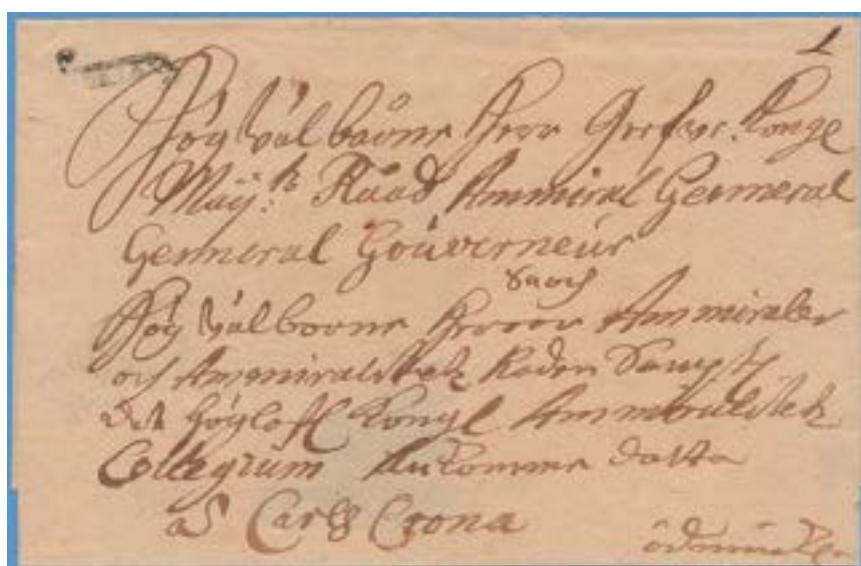 1
Hög Välborne Herr Grefwe. Konge
Maij:tz Rååd Ammiral Genneral
Genneral Gouverneur
Såoch
Hög Välborne Herrar Ammiraler
och Ammiralitetz Råder Sampt
det höglofl Kongl Ammiralitetz
Collegium Ankomme detta
Carls Crona
ödmiukl